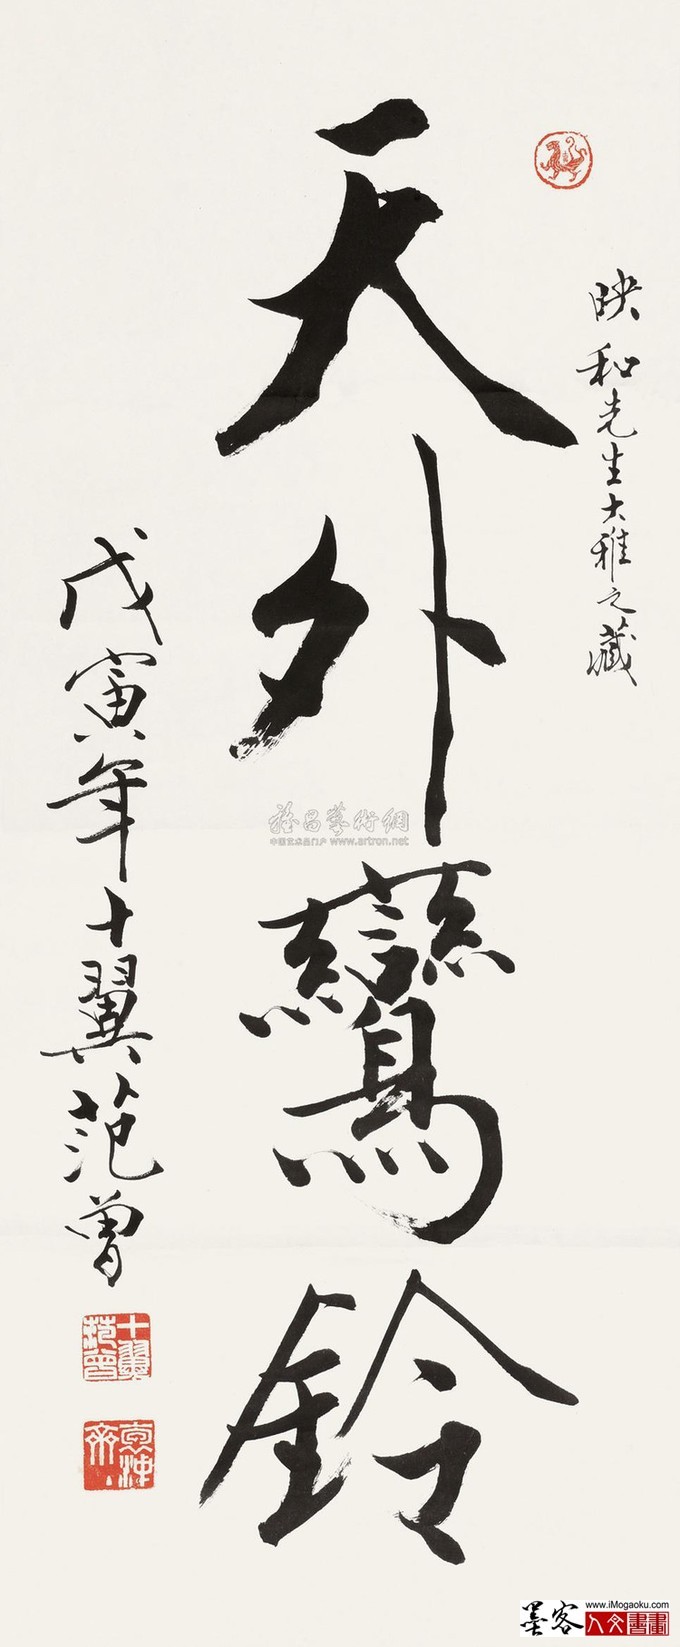 映和先生大雅之藏
天外鸞鈴
戊寅年十翼范曾
十翼范曾
雅昌藝術網
中国艺术品门户 www.artron.net
www.iMogaoku.com
墨客
人文書畫